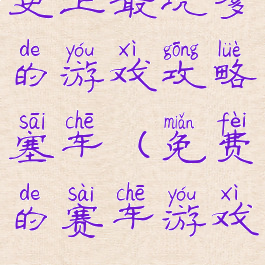 史上最坑爹
de yóu xì gōng lüè
的游戏攻略
sāi chē miǎn fèi
塞车(免费
de sài chē yóu xì
的赛车游戏